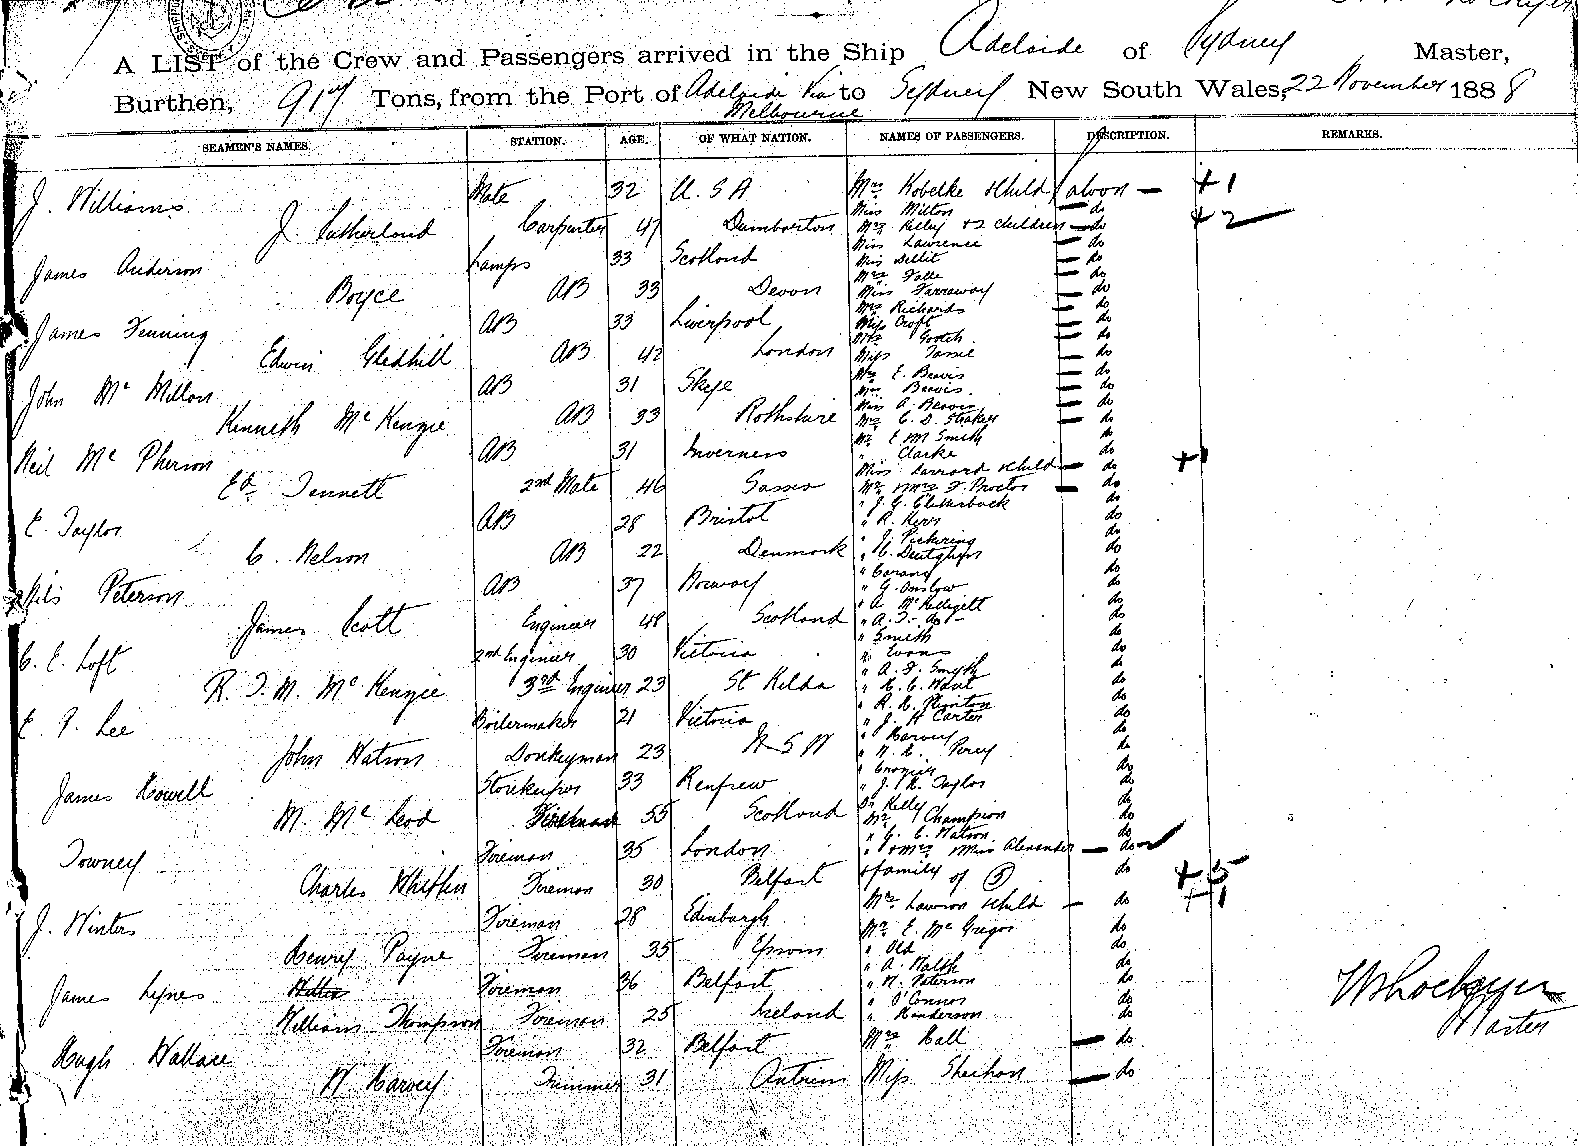 A LIST of the Crew and Passengers arrived in the Ship Adelaide of Sydney Master,
Burthen, 917 Tons, from the Port of Adelaide Via to Sydney New South Wales, 22 November 1888
Melbourne
SEAMEN'S NAMES. STATION. AGE. OF WHAT NATION. NAMES OF PASSENGERS. DESCRIPTION. REMARKS.
J. Williams Mate 32 U. S A Mrs Kobelke & Child Saloon — + 1
Miss Milton — do
J. Sutherland Carpenter 47 Dumbarton Mrs Kelly + 2 children — do + 2
Miss Lawrence — do
James Anderson Lamps 33 Scotland Miss — do
Mrs — do
Boyce AB 33 Devon Miss Farraway — do
Mrs Richards — do
James Fenning AB 33 Liverpool Miss Croft — do
Mrs Gooch — do
Edwin Gledhill AB 42 London Miss — do
Mr E. Beavis — do
John Mc Millan AB 31 Skye Beavis — do
Miss A. Beavis — do
Kenneth Mc Kenzie AB 33 Rothshire — do
Mr E M Smith do
Neil Mc Pherson AB 31 Inverness " Clarke do
Miss & Child — do + 1
Ed. Tennett 2nd Mate 46 Mr & Mrs F. Proctor — do
" J. G. Clutterbuck do
E. Taylor AB 28 Bristol " R. Kerr do
" J. Pickering do
C. Nelson AB 22 Denmark do
do
Nils Peterson AB 37 Norway " G. Onslow do
do
James Scott Engineer 48 Scotland do
" Smith do
C. E. Loft 2nd Engineer 30 Victoria " Evans do
" A. F. Smyth do
R. J. M. Mc Kenzie 3rd Engineer 23 St Kilda do
do
E. P. Lee Boilermaker 21 Victoria " J. H Carter do
" Harvey do
John Watson Donkeyman 23 N S W Percy do
" Crozier do
James Howell Storekeeper 33 Renfrew " J. R. Taylor do
Dr Kelly do
M. Mc Leod Fireman 55 Scotland Mr Champion do
" G. C. Watson do
Towney Fireman 35 London " & Mrs & Miss Alexander — do
Charles Whiffin Fireman 30 Belfast & family of 5 do + 5
Mrs Lawson & Child — do + 1
J. Winters Fireman 28 Edinburgh Mr E. Mc Gregor do
Henry Payne Fireman 35 Epsom " Old do
" A. Walsh do
James Lynes Fireman 36 Belfast " N. Paterson do
" O'Connor do
William Thompson Fireman 25 Ireland " Henderson do
Hugh Wallace Fireman 32 Belfast Mrs Hall — do
W. Harvey Trimmer 31 Antrim Miss Sheehan — do
W Lockyer
Master